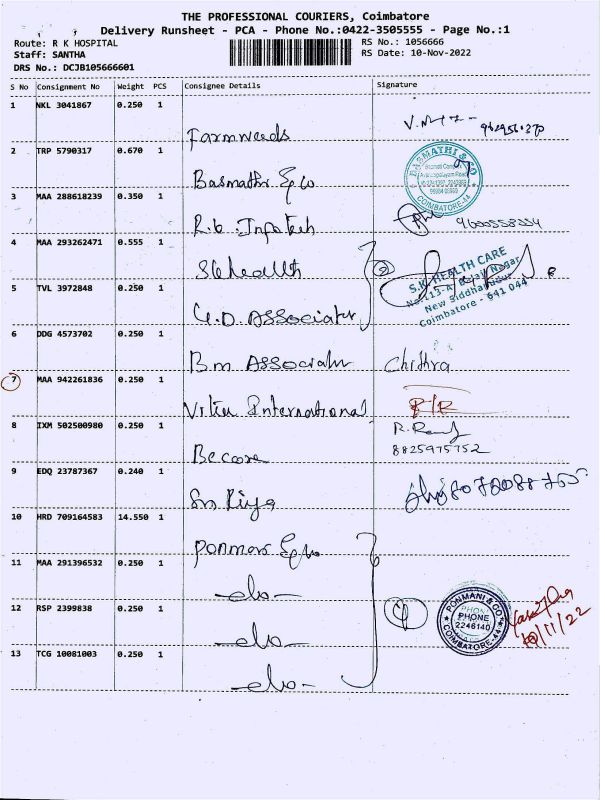 THE PROFESSIONAL COURIERS, Coimbatore
Delivery Runsheet - PCA - Phone No.:0422-3505555 - Page No.:1
Route: R K HOSPITAL
Staff: SANTHA
DRS No.: DCJB105666601
RS No.: 1056666
RS Date: 10-Nov-2022
S No Consignment No Weight PCS Consignee Details Signature
1 NKL 3041867 0.250 1
Farmweeds
2 TRP 5790317 0.670 1
Basmathi & Co
BASMATHI & CO
COIMBATORE-44
3 MAA 288618239 0.350 1
R.k. Infotech 9600558334
4 MAA 293262471 0.555 1
Sk health 2
S.K. HEALTH CARE
New Siddhapudur
Coimbatore - 641 044
5 TVL 3972848 0.250 1
G.D. Associates
6 DDG 4573702 0.250 1
B.m Associates Chithra
7 MAA 942261836 0.250 1
International
8 IXM 502500980 0.250 1
Becore 8825975752
9 EDQ 23787367 0.240 1
Sri Riya
10 HRD 709164583 14.550 1
Ponmani & Co
11 MAA 291396532 0.250 1
-do-
12 RSP 2399838 0.250 1
-do- 4
PONMANI & CO
PHONE
2246140
COIMBATORE-44
10/11/22
13 TCG 10081003 0.250 1
-do-